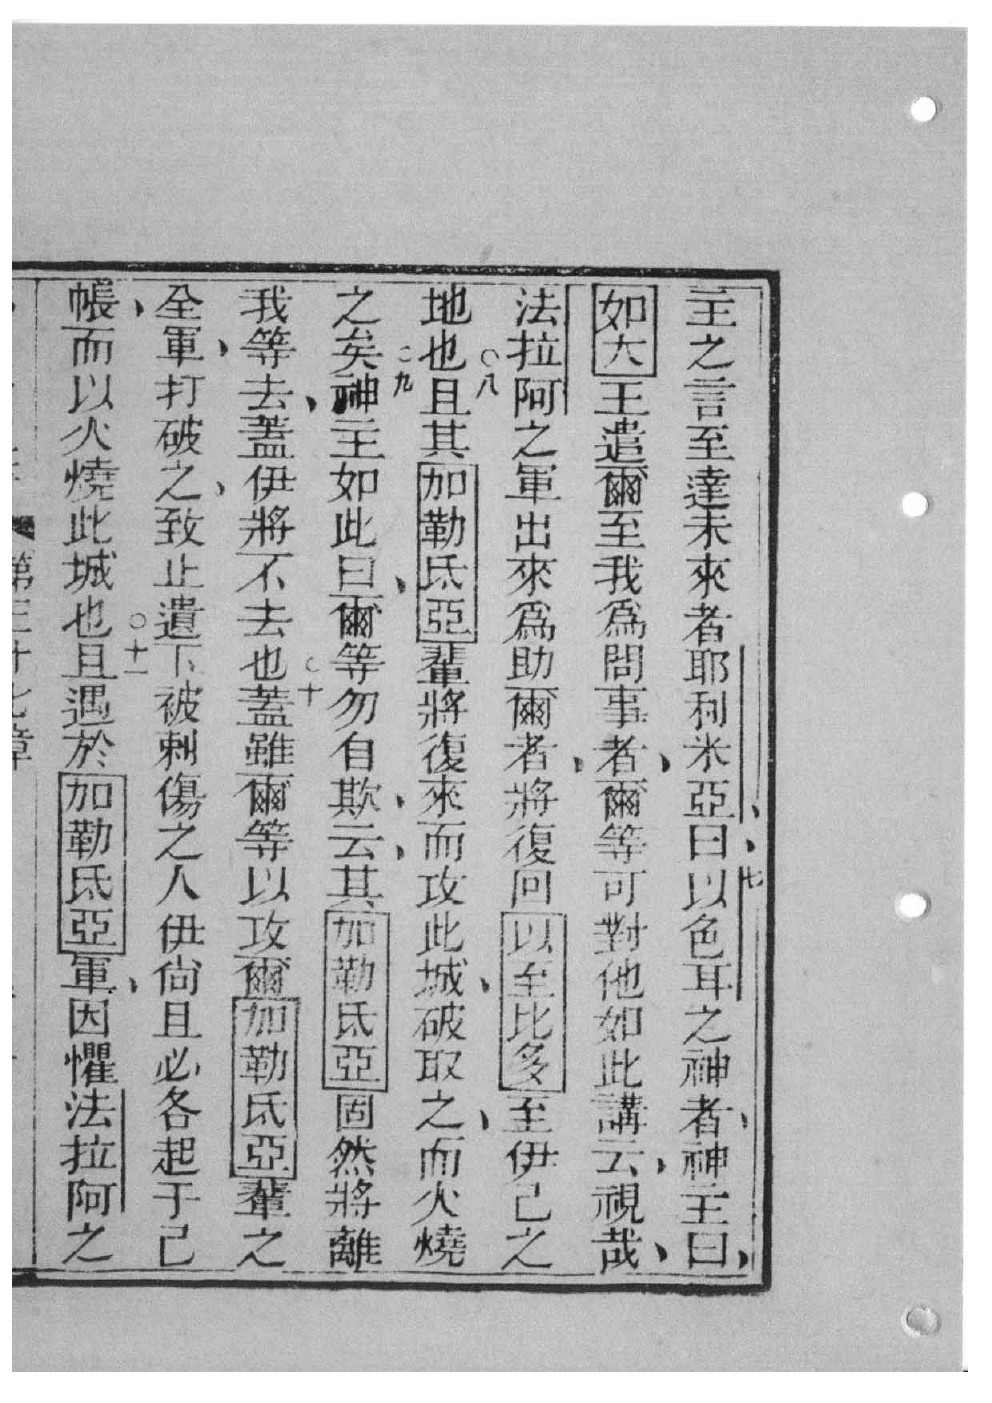 主之言至達未來者耶利米亞曰七以色耳之神者神主曰
如大王遣爾至我爲問事者爾等可對他如此講云視哉
法拉阿之軍出來爲助爾者將復回以至比多至伊己之
地也○八且其加勒氐亞輩將復來而攻此城破取之而火燒
之矣○九神主如此曰爾等勿自欺云其加勒氐亞固然將離
我等去蓋伊將不去也○十蓋雖爾等以攻爾加勒氐亞輩之
全軍打破之致止遺下被刺傷之人伊尙且必各起于己
帳而以火燒此城也○十一且遇於加勒氐亞軍因懼法拉阿之
第三十七章